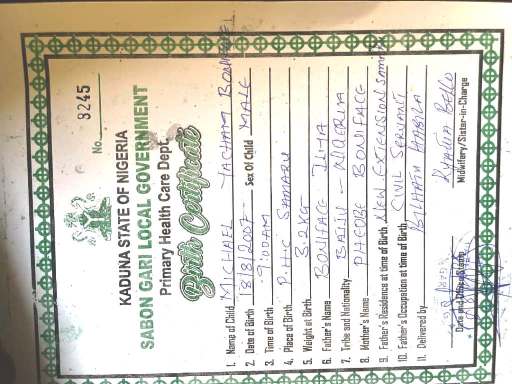 No. 3245
KADUNA STATE OF NIGERIA
SABON GARI LOCAL GOVERNMENT
Primary Health Care Dept.
Birth Certificate
1. Name of Child MICHAEL YACHAM BONIFACE
2. Date of Birth 18/8/2007 Sex Of Child MALE
3. Time of Birth 9:00AM
4. Place of Birth P.H.C SAMARU
5. Weight at Birth 3.2KG
6. Father's Name BONIFACE
7. Tribe and Nationality BAJJU - NIGERIA
8. Mother's Name PHEOBE BONIFACE
9. Father's Residence at time of Birth NEW EXTENSION SAMARU
10. Father's Occupation at time of Birth CIVIL SERVANT
11. Delivered by HABILA
Bello
Date and Office Stamp Midwifery/Sister-in-Charge